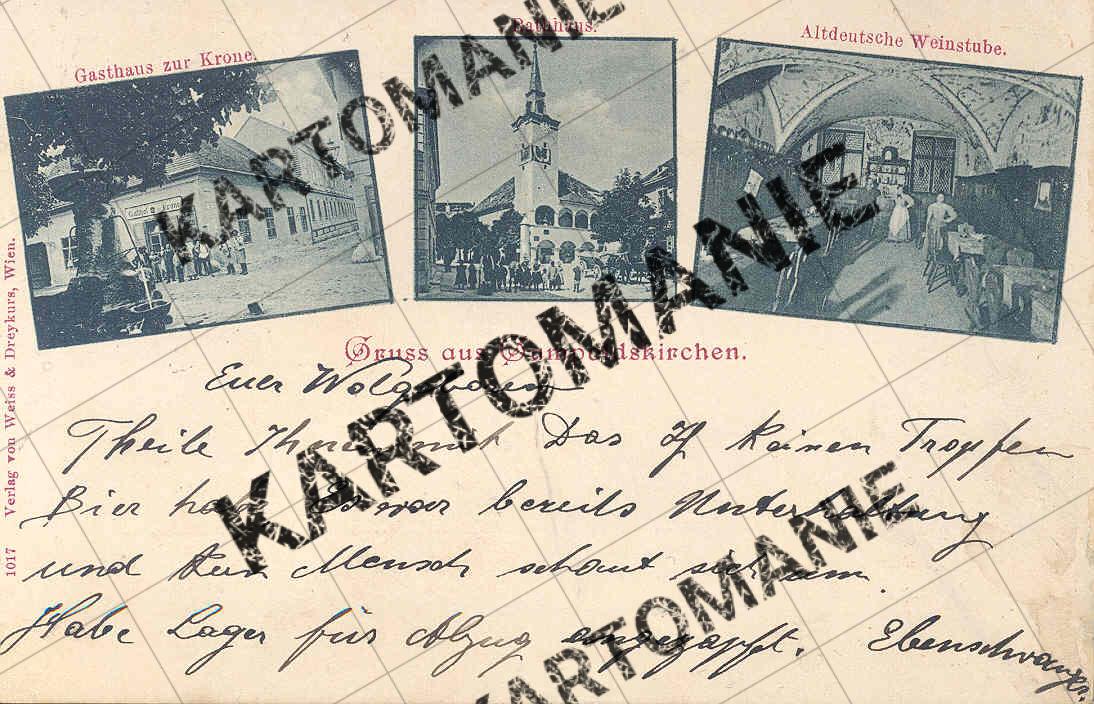 Gasthaus zur Krone.
Rathhaus.
Altdeutsche Weinstube.
Gruss aus Gumpoldskirchen.
Euer
Theile Ihnen mit Das Keinen Tropfen
Bier habe Es war bereits Unterhaltung
und kein Mensch schaut sich um
Habe Lager für Abzug angezapft. Ebenschwanger
1017 Verlag von Weiss & Dreykurs, Wien.
KARTOMANIE
KARTOMANIE
KARTOMANIE
KARTOMANIE
KARTOMANIE
KARTOMANIE
KARTOMANIE